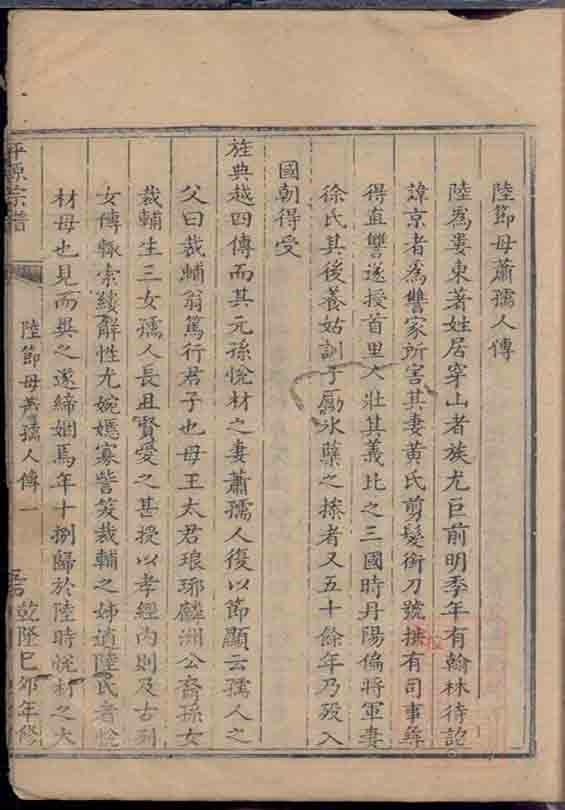 陸節母蕭孺人傳
陸為婁東著姓居穿山者族尤巨前明季年有翰林待詔
諱京者為讐家所害其妻黃氏剪髮銜刀號撫有司事舜
得直讐遂授首里人壯其義比之三國時丹陽偏將軍妻
徐氏其後養姑訓子勵冰蘗之操者又五十餘年乃歿入
國朝得受
旌典越四傳而其元孫悅材之妻蕭孺人復以節顯云孺人之
父曰裁輔翁篤行君子也母王太君琅琊麟洲公裔孫女
裁輔生三女孺人長且賢愛之甚授以孝經內則及古列
女傳輒索縷解性尤婉嫕寡訾笑裁輔之姊適陸氏者悅
材母也見而異之遂締姻焉年十捌歸於陸時悅材之大
平原宗譜
陸節母蕭孺人傳一
乾隆己卯年修